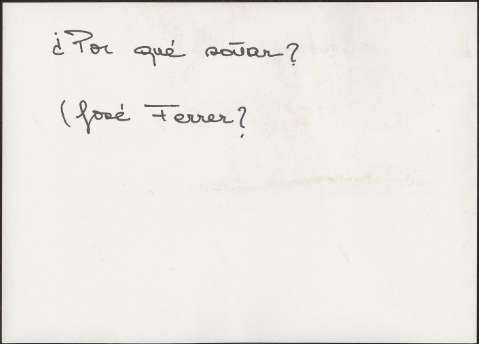 ¿Por qué soñar?
(José Ferrer?